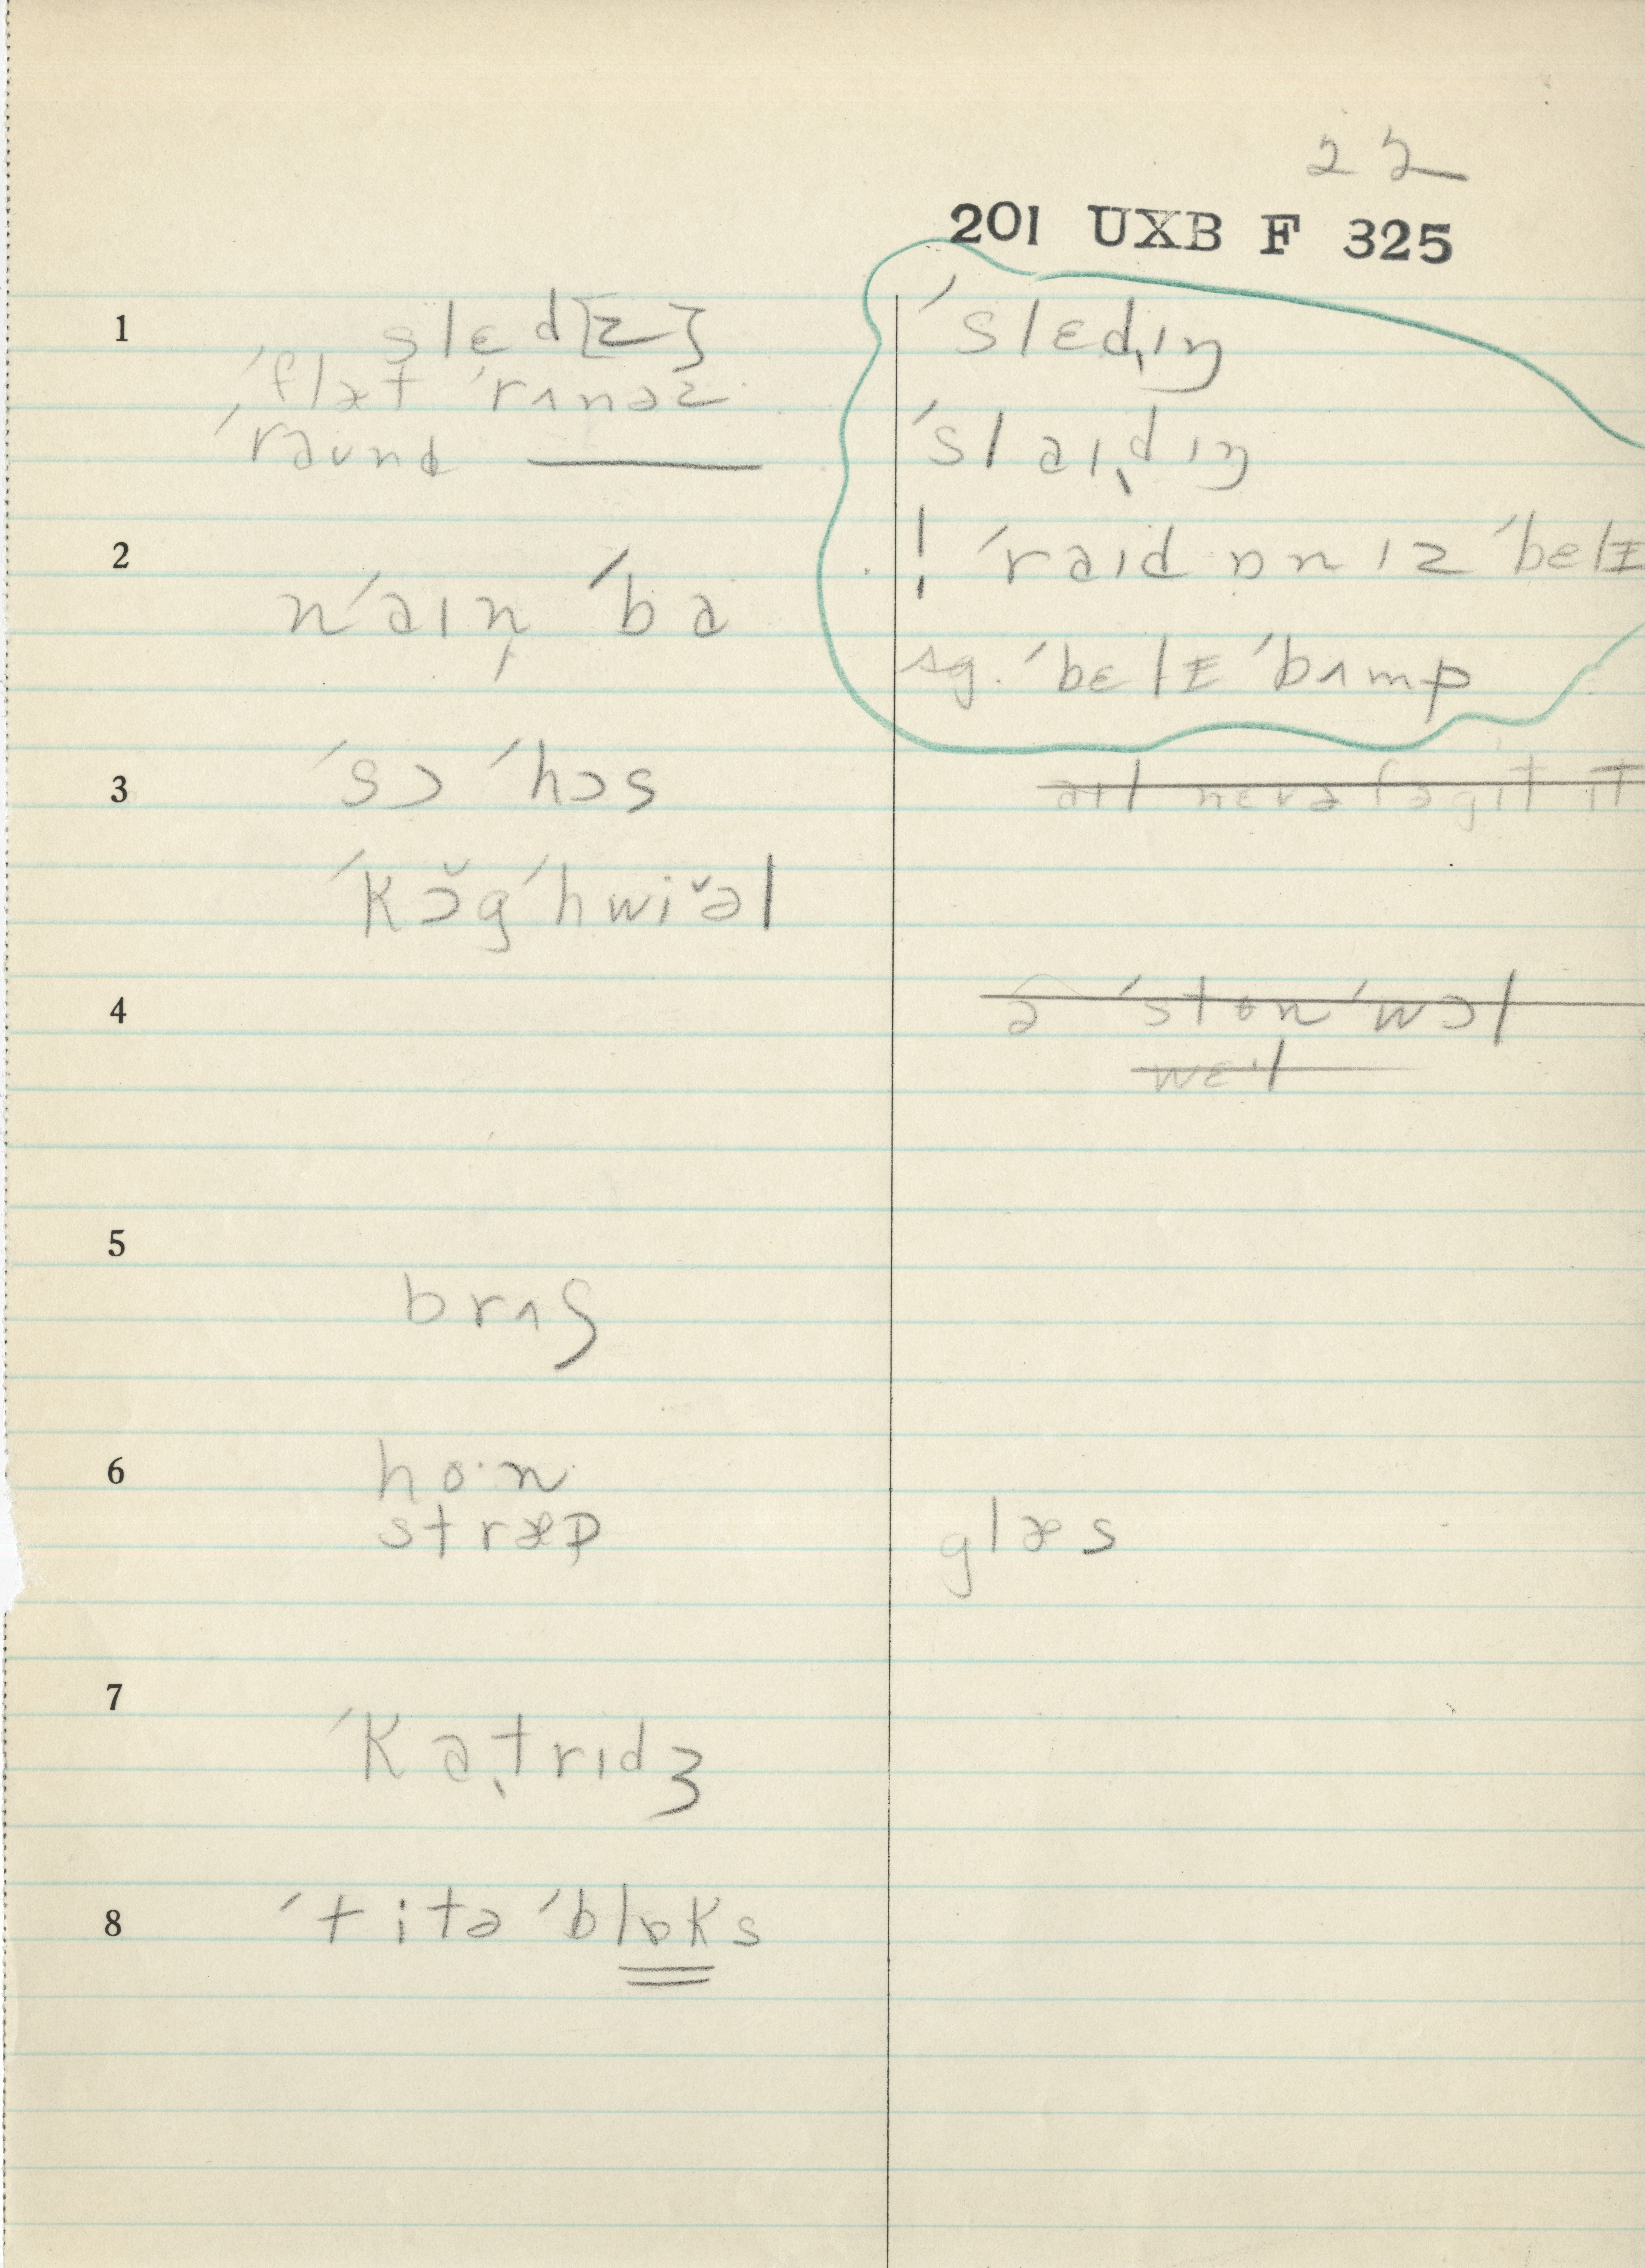 22
201 UXB F 325
1
slɛd[z]
ˈflæt ˈrʌnəz
ˈraund ———
ˈslɛdɪŋ
ˈslaɪdɪŋ
! ˈraɪd ɒn ɪz ˈbɛlɪ
sg. ˈbɛlɪ ˈbʌmp
2
nˈaɪn ˈba
3
ˈsɔ ˈhɔs
ˈkɔ̆gˈhwiə̆l
aɪl nɛvə fəgit it
4
ə ˈstɵn ˈwɔl
wɛˑl
5
brʌʃ
6
hoˑn
stræp
glæs
7
ˈkatrɪdʒ
8
ˈtitə ˈblɒks